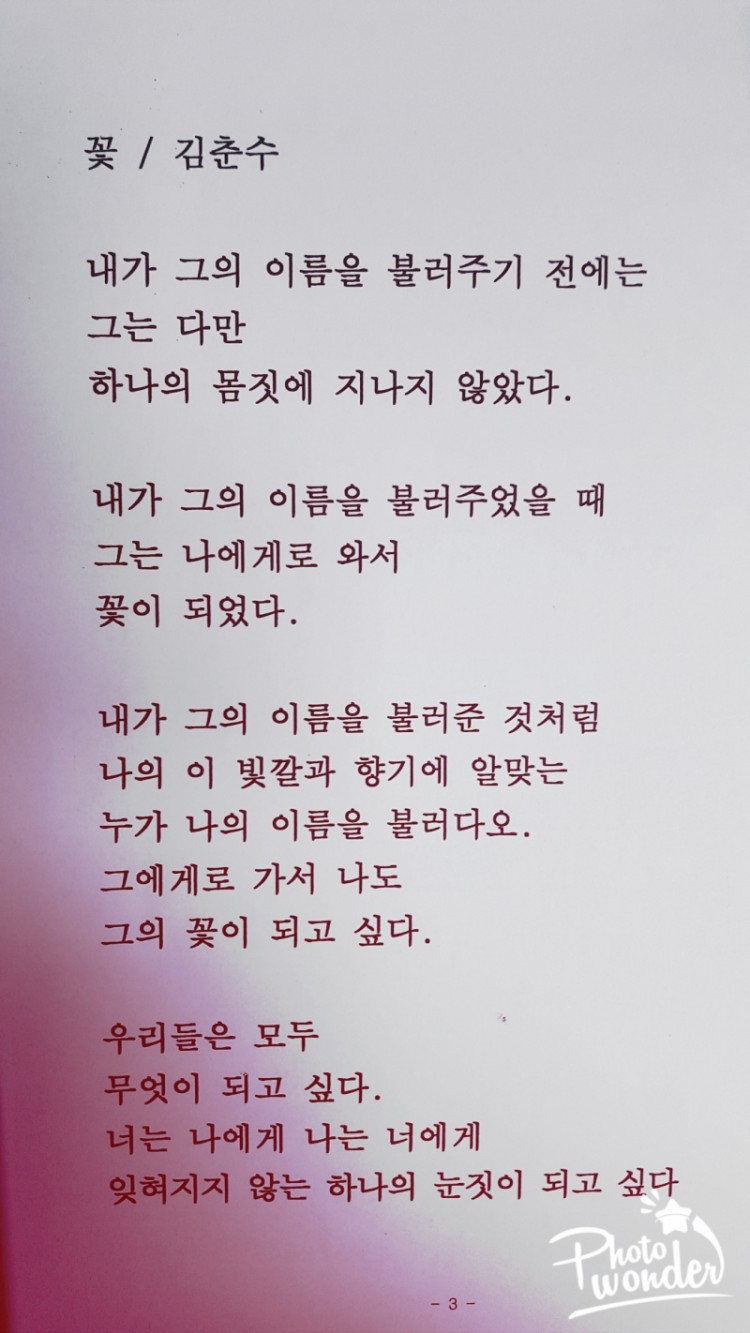 꽃 / 김춘수
내가 그의 이름을 불러주기 전에는
그는 다만
하나의 몸짓에 지나지 않았다.
내가 그의 이름을 불러주었을 때
그는 나에게로 와서
꽃이 되었다.
내가 그의 이름을 불러준 것처럼
나의 이 빛깔과 향기에 알맞는
누가 나의 이름을 불러다오.
그에게로 가서 나도
그의 꽃이 되고 싶다.
우리들은 모두
무엇이 되고 싶다.
너는 나에게 나는 너에게
잊혀지지 않는 하나의 눈짓이 되고 싶다
Photo
wonder
- 3 -